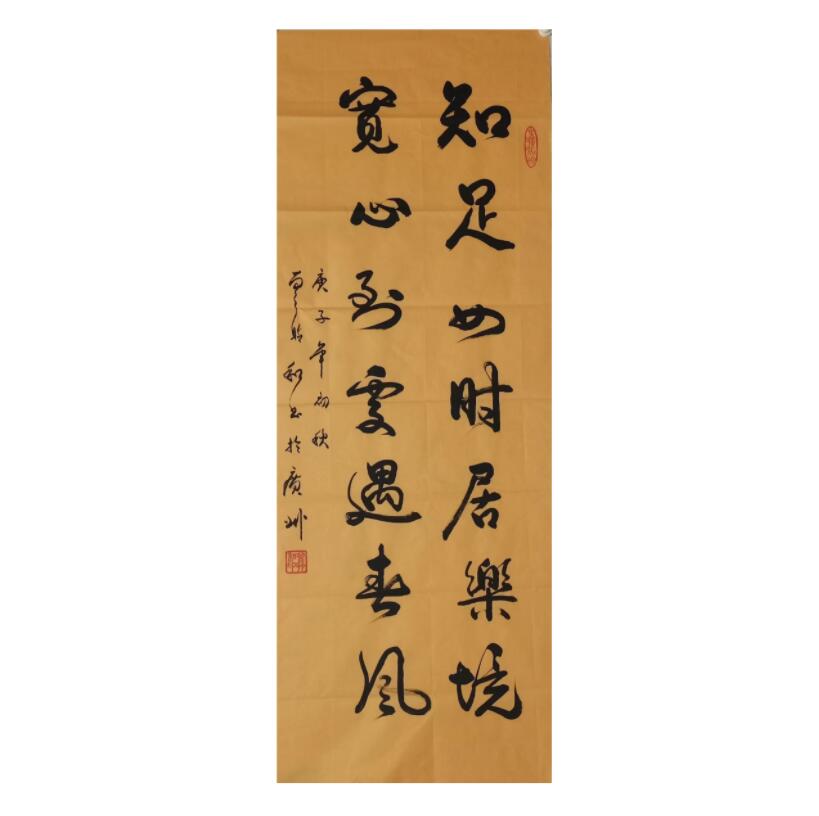 知足如时居樂境
寬心到處遇春風
庚子年初秋
和书於廣州